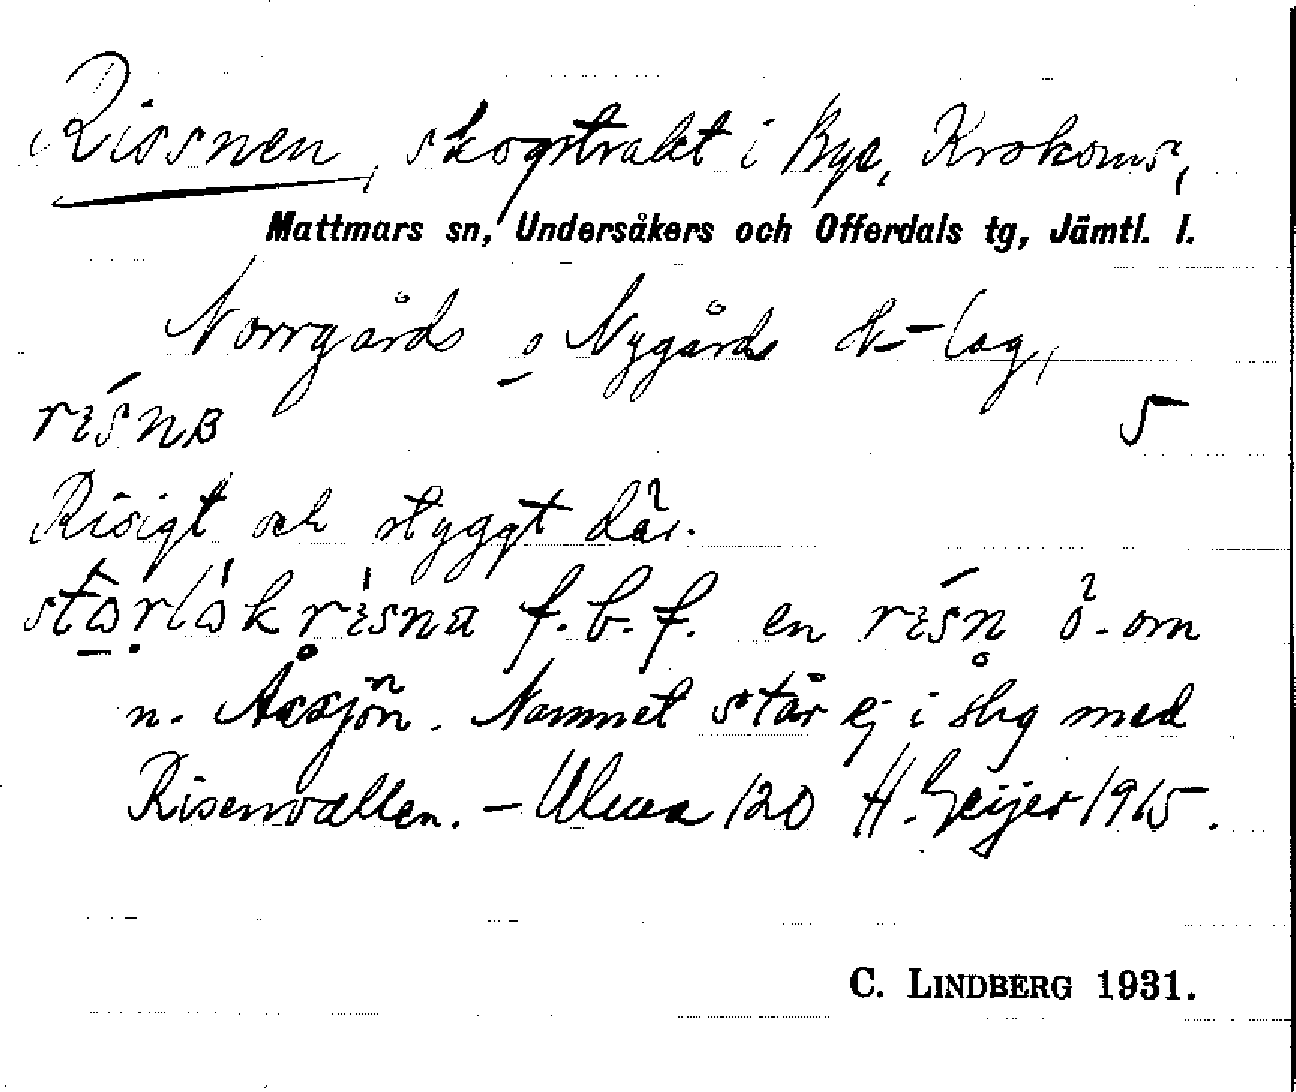 Rissnen, skogstrakt i Bye, Krokoms,
Mattmars sn, Undersåkers och Offerdals tg, Jämtl. l.
Norrgårds o Nygårds sk-lag,
rı́snʙ 5
Risigt och styggt där.
f. b. f. en ö. om
n. Åxsjön. Namnet står ej i sbg med
Risenvallen. – Ulma 120 H. Geijer 1915.
C. LINDBERG 1931.